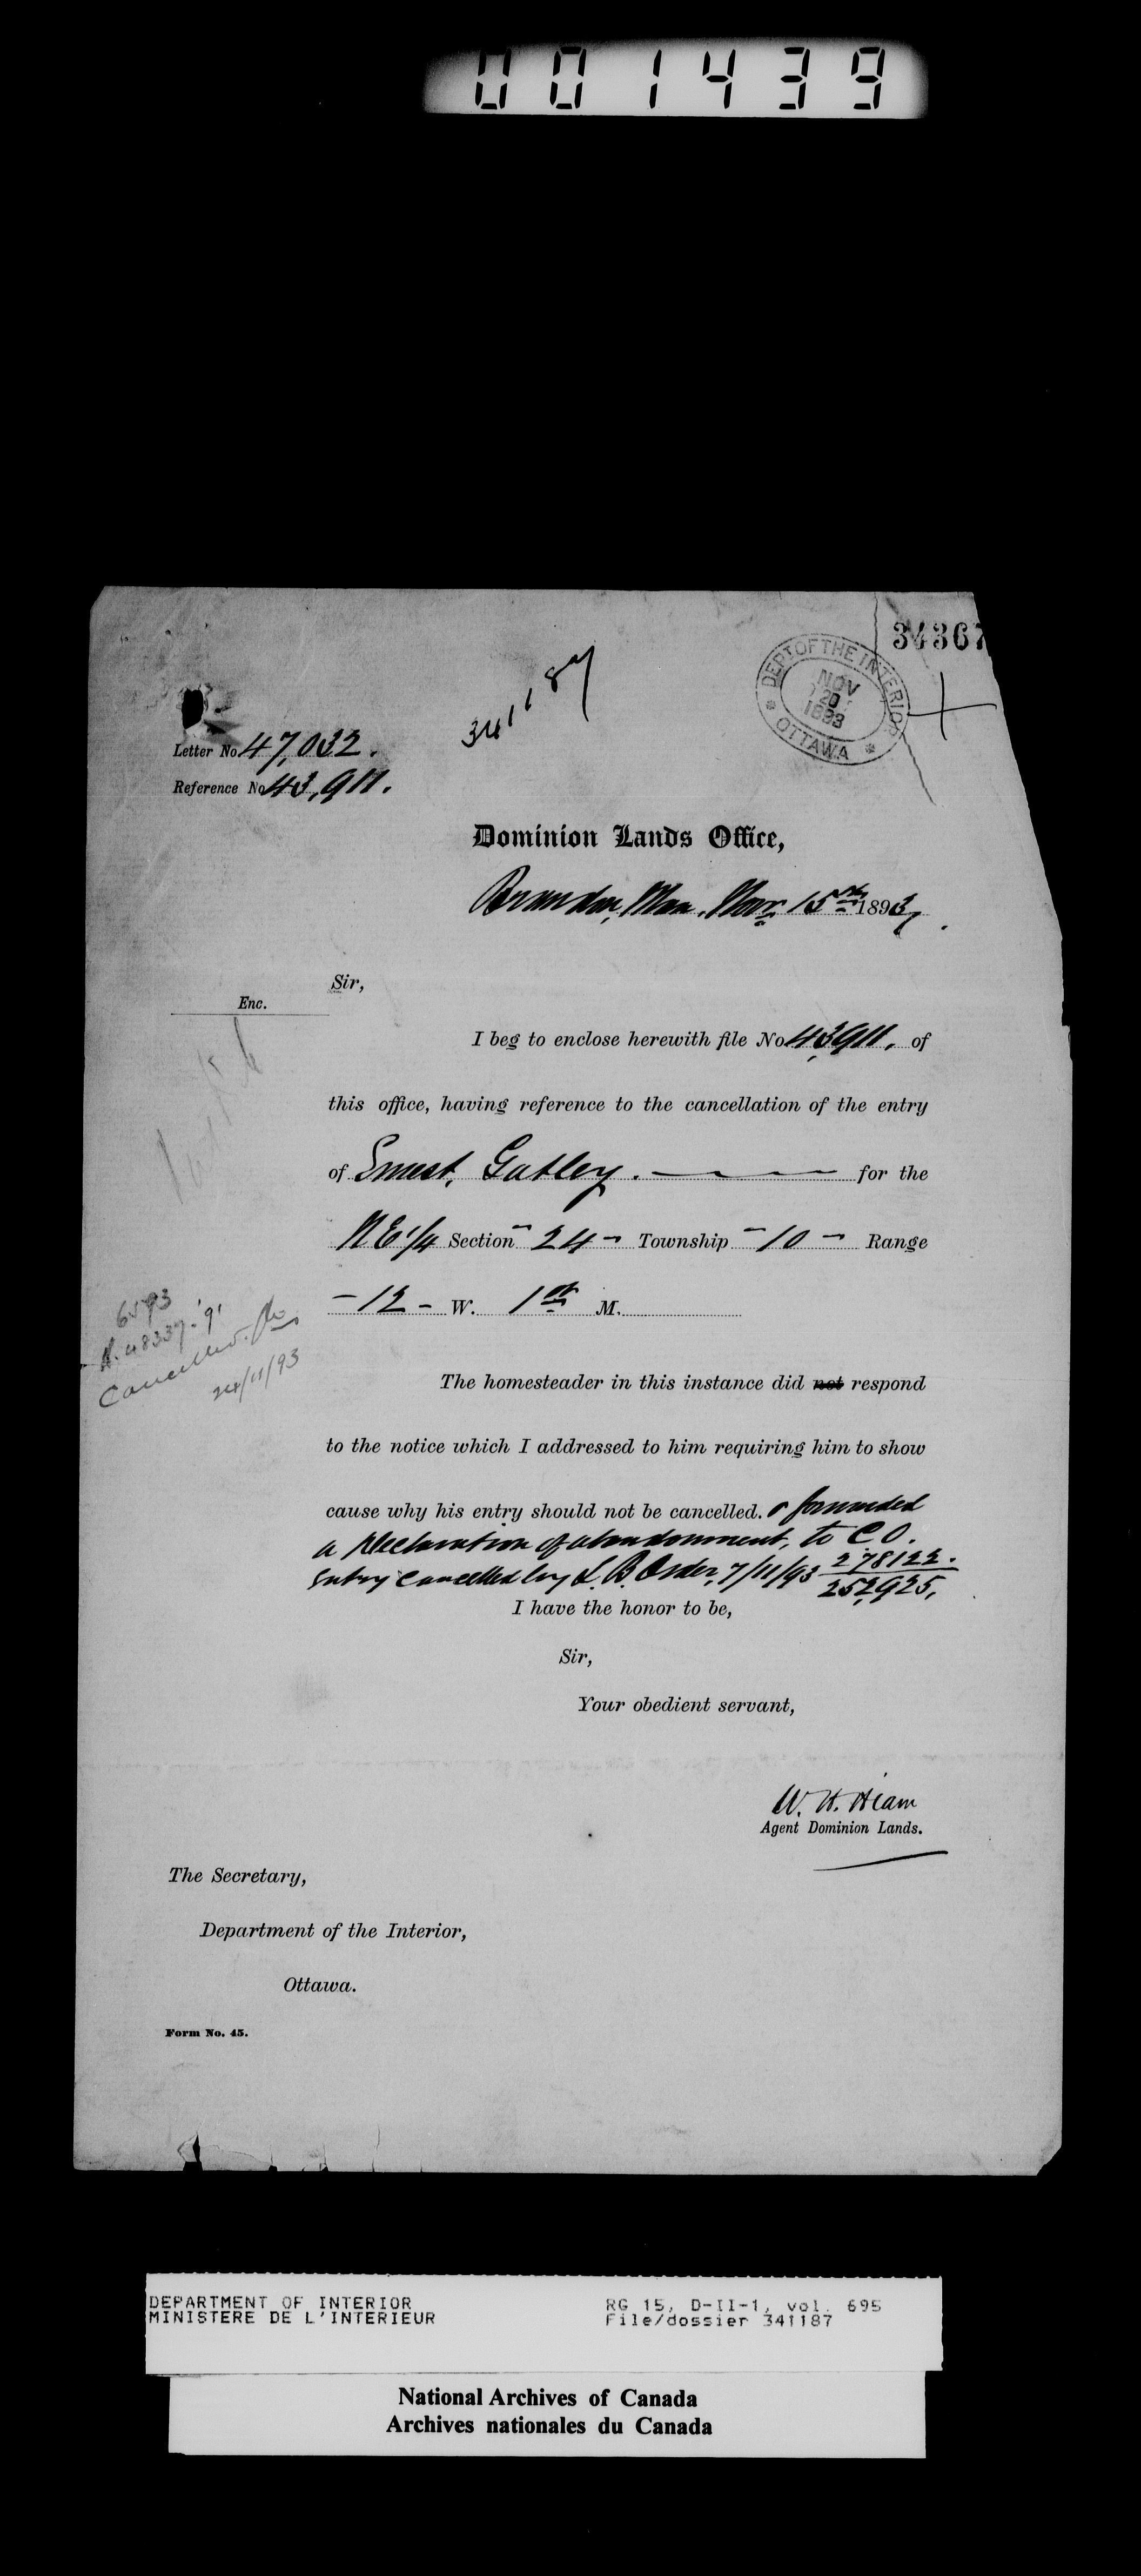 001439
34367
341187
DEPT OF THE INTERIOR
NOV
20
1893
OTTAWA
Letter No. 47,032.
Reference No. 43,911.
Dominion Lands Office,
Brandon, Man. Novr. 15th 1893,
Sir,
Enc.
I beg to enclose herewith file No. 43,911. of
this office, having reference to the cancellation of the entry
of Ernest Gatley. for the
NE 1/4 Section - 24 - Township - 10 - Range
- 12 - W. 1st M.
6593
A. 48339-'91
Cancelled.
24/11/93
The homesteader in this instance did not respond
to the notice which I addressed to him requiring him to show
cause why his entry should not be cancelled. & forwarded
a declaration of abandonment, to C O.
Entry cancelled by L. B. Order, 7/11/93 278122.
252,925,
I have the honor to be,
Sir,
Your obedient servant,
W. H. Hiam
Agent Dominion Lands.
The Secretary,
Department of the Interior,
Ottawa.
Form No. 45.
DEPARTMENT OF INTERIOR RG 15, D-II-1, vol. 695
MINISTERE DE L'INTERIEUR File/dossier 341187
National Archives of Canada
Archives nationales du Canada